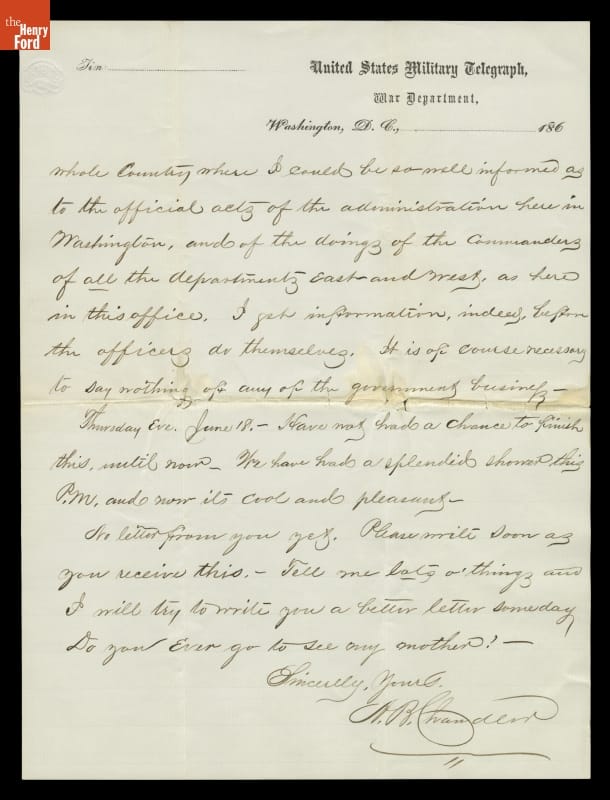 the
Henry
Ford
Time
United States Military Telegraph,
War Department,
Washington, D. C., 186
whole Country where I could be so well informed as
to the official acts of the administration here in
Washington, and of the doings of the Commanders
of all the departments East and West, as here
in this office. I get information, indeed, before
the officers do themselves. It is of course necessary
to say nothing of any of the government business —
Thursday Eve. June 18. — Have not had a chance to finish
this, until now — We have had a splendid shower this
P.M. and now its cool and pleasant —
No letter from you yet. Please write soon as
you receive this. — Tell me lots o' things and
I will try to write you a better letter someday
Do you Ever go to see my mother? —
Sincerely, Yours.
A. B. Chandler